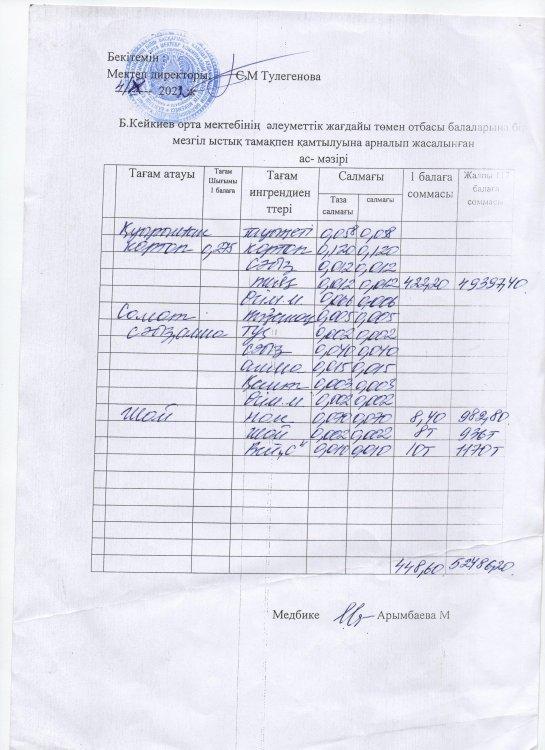 Бекітемін
Мектеп директоры С.М Тулегенова
Б.Кейкиев орта мектебінің әлеуметтік жағдайы төмен отбасы балаларына бір
мезгіл ыстық тамақпен қамтылуына арналып жасалынған
ас- мәзірі
Тағам атауы Тағам Шығымы 1 балаға Тағам ингрендиенттері Салмағы 1 балаға соммасы Жалпы 117 балаға соммасы
Таза салмағы салмағы
Қуырылған 0,058 0,058
картоп 0,275 картоп 0,120 0,120
сәбіз 0,012 0,012
пияз 0,012 0,012 422,20 49397,40
Өсім.м 0,006 0,006
Салат 0,005 0,005
сәбіз,алма тұз 0,002 0,002
сәбіз 0,040 0,040
алма 0,015 0,015
Қант 0,003 0,003
Өсім.м 0,002 0,002
Шай нан 0,070 0,070 8,40 982,80
шай 0,002 0,002 8т 936т
0,010 0,010 10т 1170т
448,60 52486,20
Медбике Арымбаева М